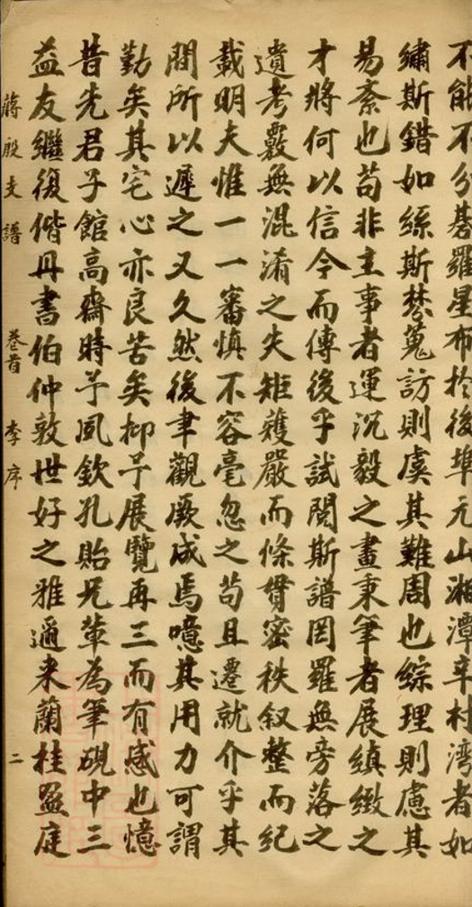 不能不分碁羅星布於後埠元山湘潭辛村湾者如
繡斯錯如絲斯棼蒐訪則虞其難周也綜理則慮其
易紊也苟非主事者運沉毅之畫秉筆者展縝緻之
才將何以信今而傳後乎試閱斯譜罔羅無旁落之
遺考覈無混淆之失矩矱嚴而條貫密秩叙整而紀
載明夫惟一一審慎不容毫忽之苟且遷就介乎其
間所以遲之又久然後聿觀厥成焉噫其用力可謂
勤矣其宅心亦良苦矣抑予展覽再三而有感也憶
昔先君子館高齋時予夙欽孔貽兄輩為筆硯中三
益友繼復偕丹書伯仲敦世好之雅邇来蘭桂盈庭
蔣殷支譜 卷首 李序 二